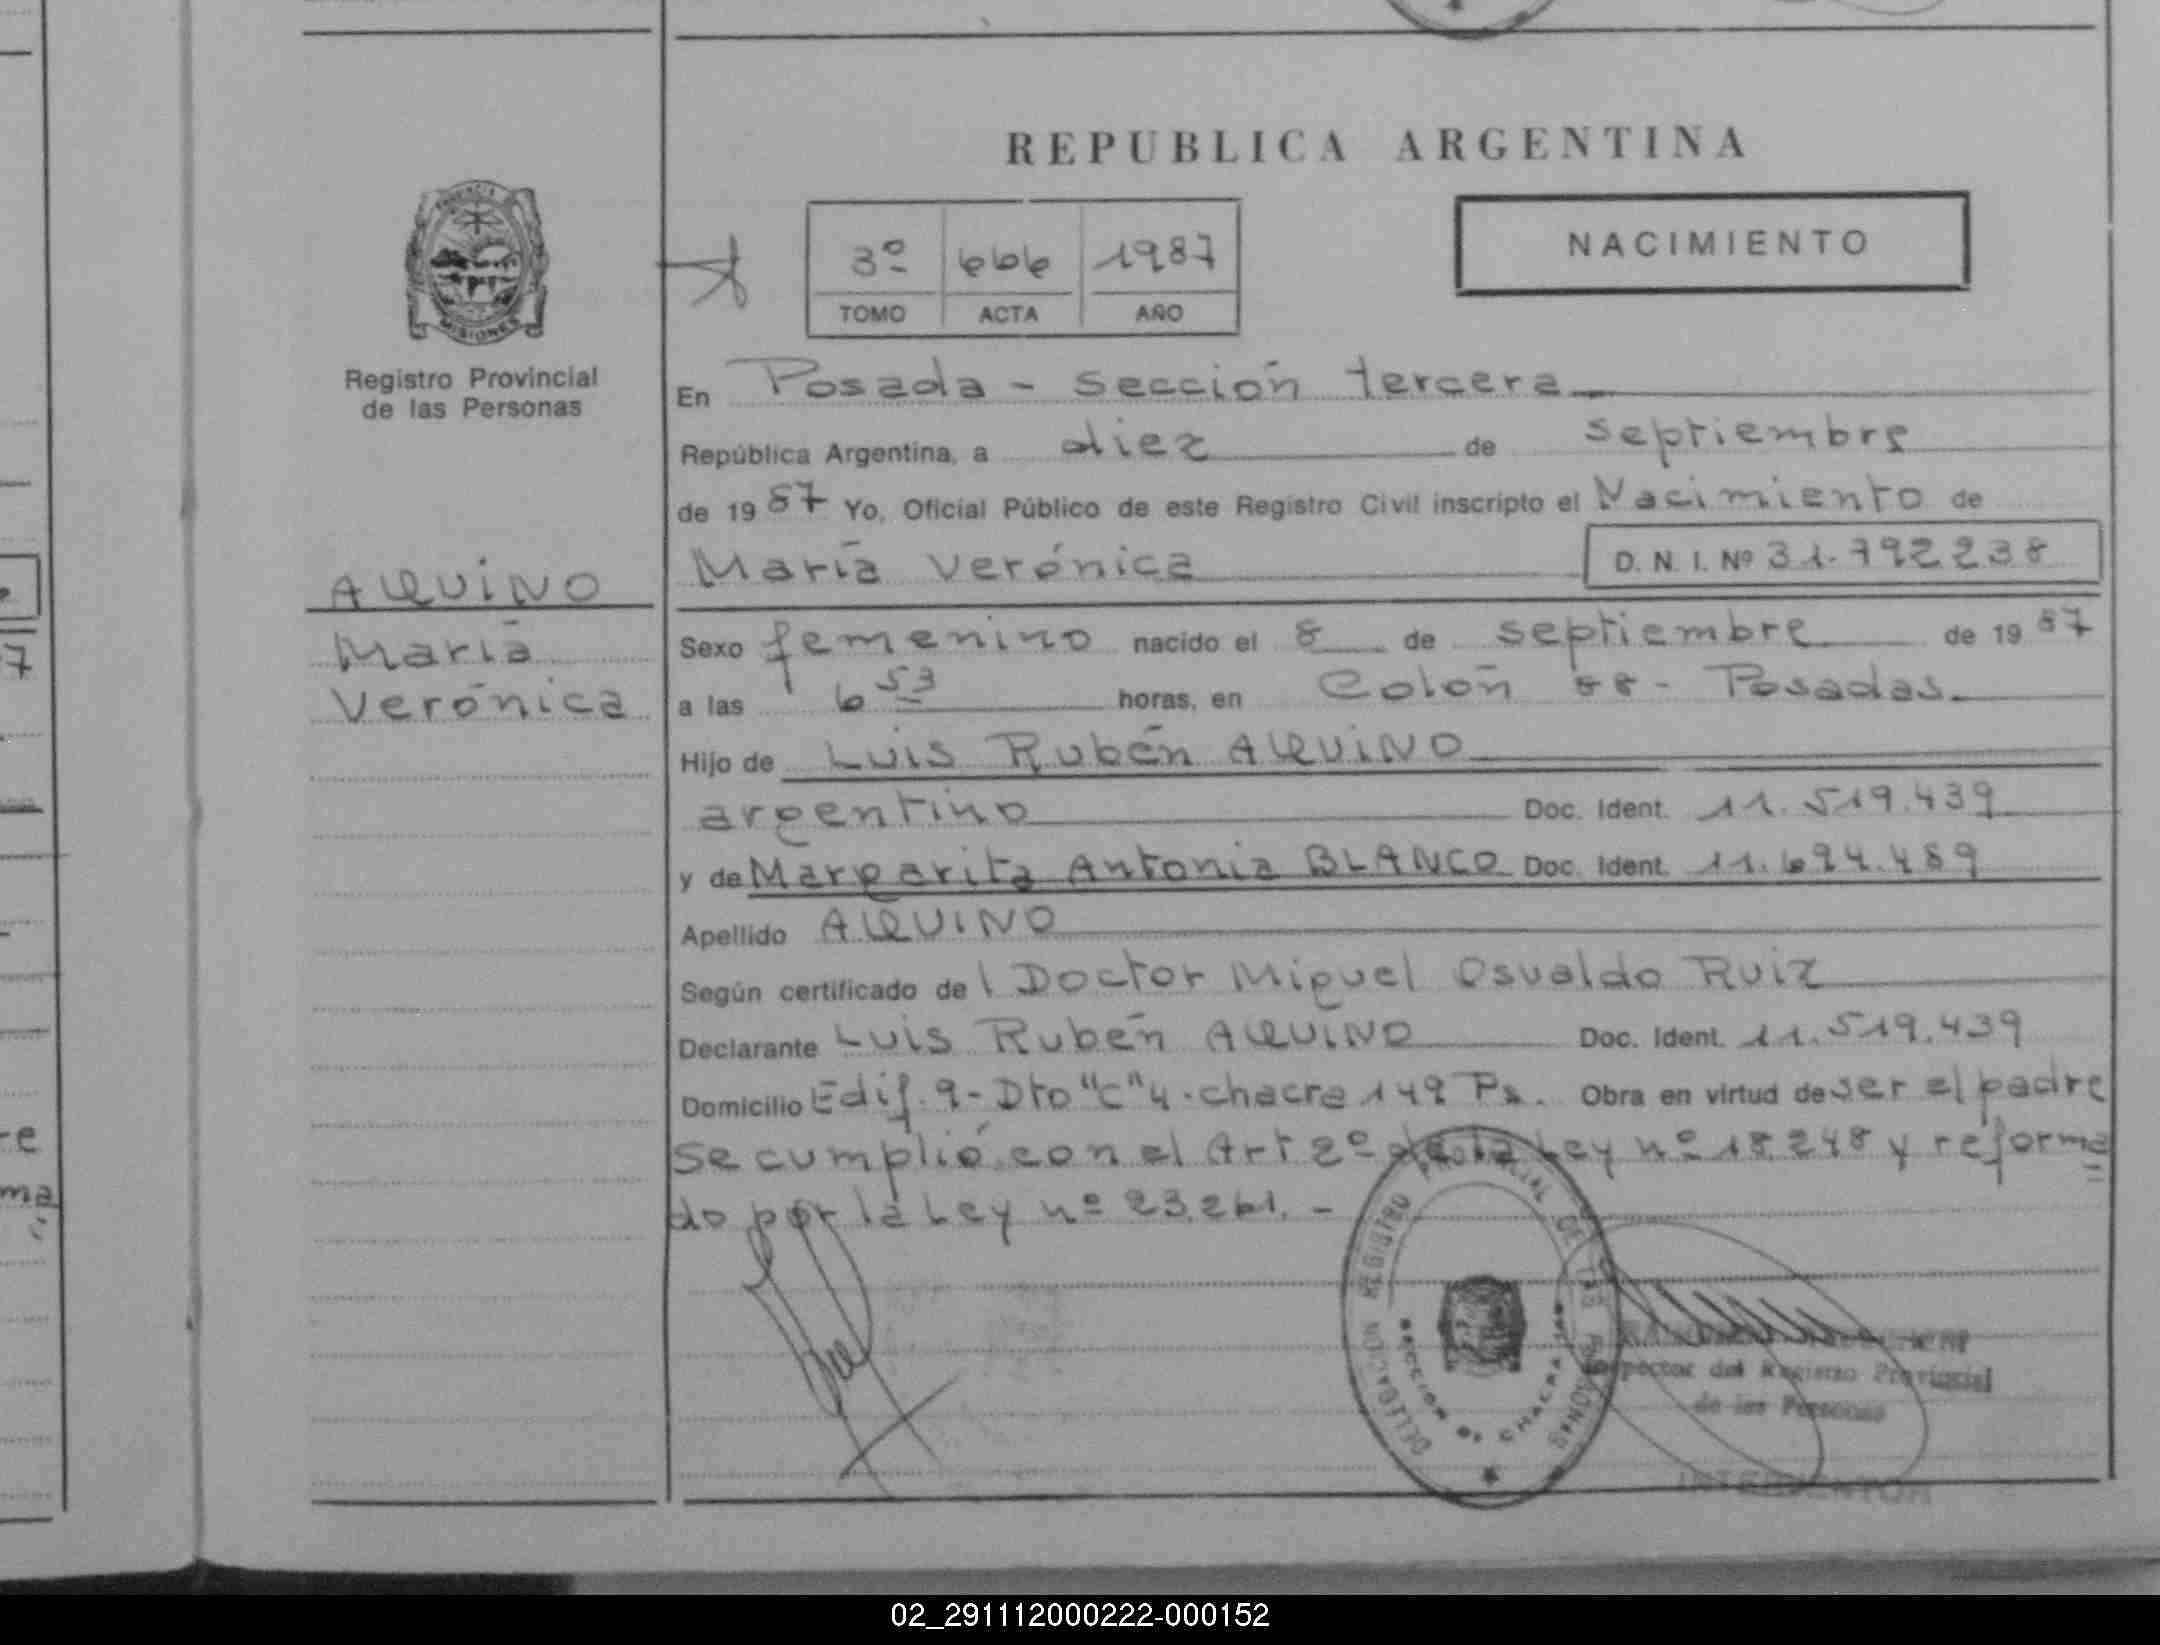 REPUBLICA ARGENTINA
PROVINCIA
MISIONES
Registro Provincial
de las Personas
3º 666 1987
TOMO ACTA AÑO
NACIMIENTO
En Posada - sección tercera
República Argentina, a diez de septiembre
de 1987 Yo, Oficial Público de este Registro Civil inscripto el Nacimiento de
María Verónica D. N. I. Nº 31.792238
AQUINO
María
Verónica
Sexo femenino nacido el 8 de septiembre de 1987
a las 6 53 horas, en Colón 88 - Posadas
Hijo de Luis Rubén AQUINO
argentino Doc. Ident. 11.519.439
y de Margarita Antonia BLANCO Doc. Ident. 11.694.489
Apellido AQUINO
Según certificado del Doctor Miguel Osvaldo Ruiz
Declarante Luis Rubén AQUINO Doc. Ident. 11.519.439
Domicilio Edif. 9 - Dto "C" 4 - chacra 149 Ps. Obra en virtud de ser el padre
se cumplió con el Art 2º de la Ley nº 18.248 y reforma
do por la Ley nº 23.261. -
DELEGACION REGISTRO PROVINCIAL DE LAS PERSONAS
SECCION 3ª CHACRA
Inspector del Registro Provincial
de las Personas
INTERVENTOR
02_291112000222-000152